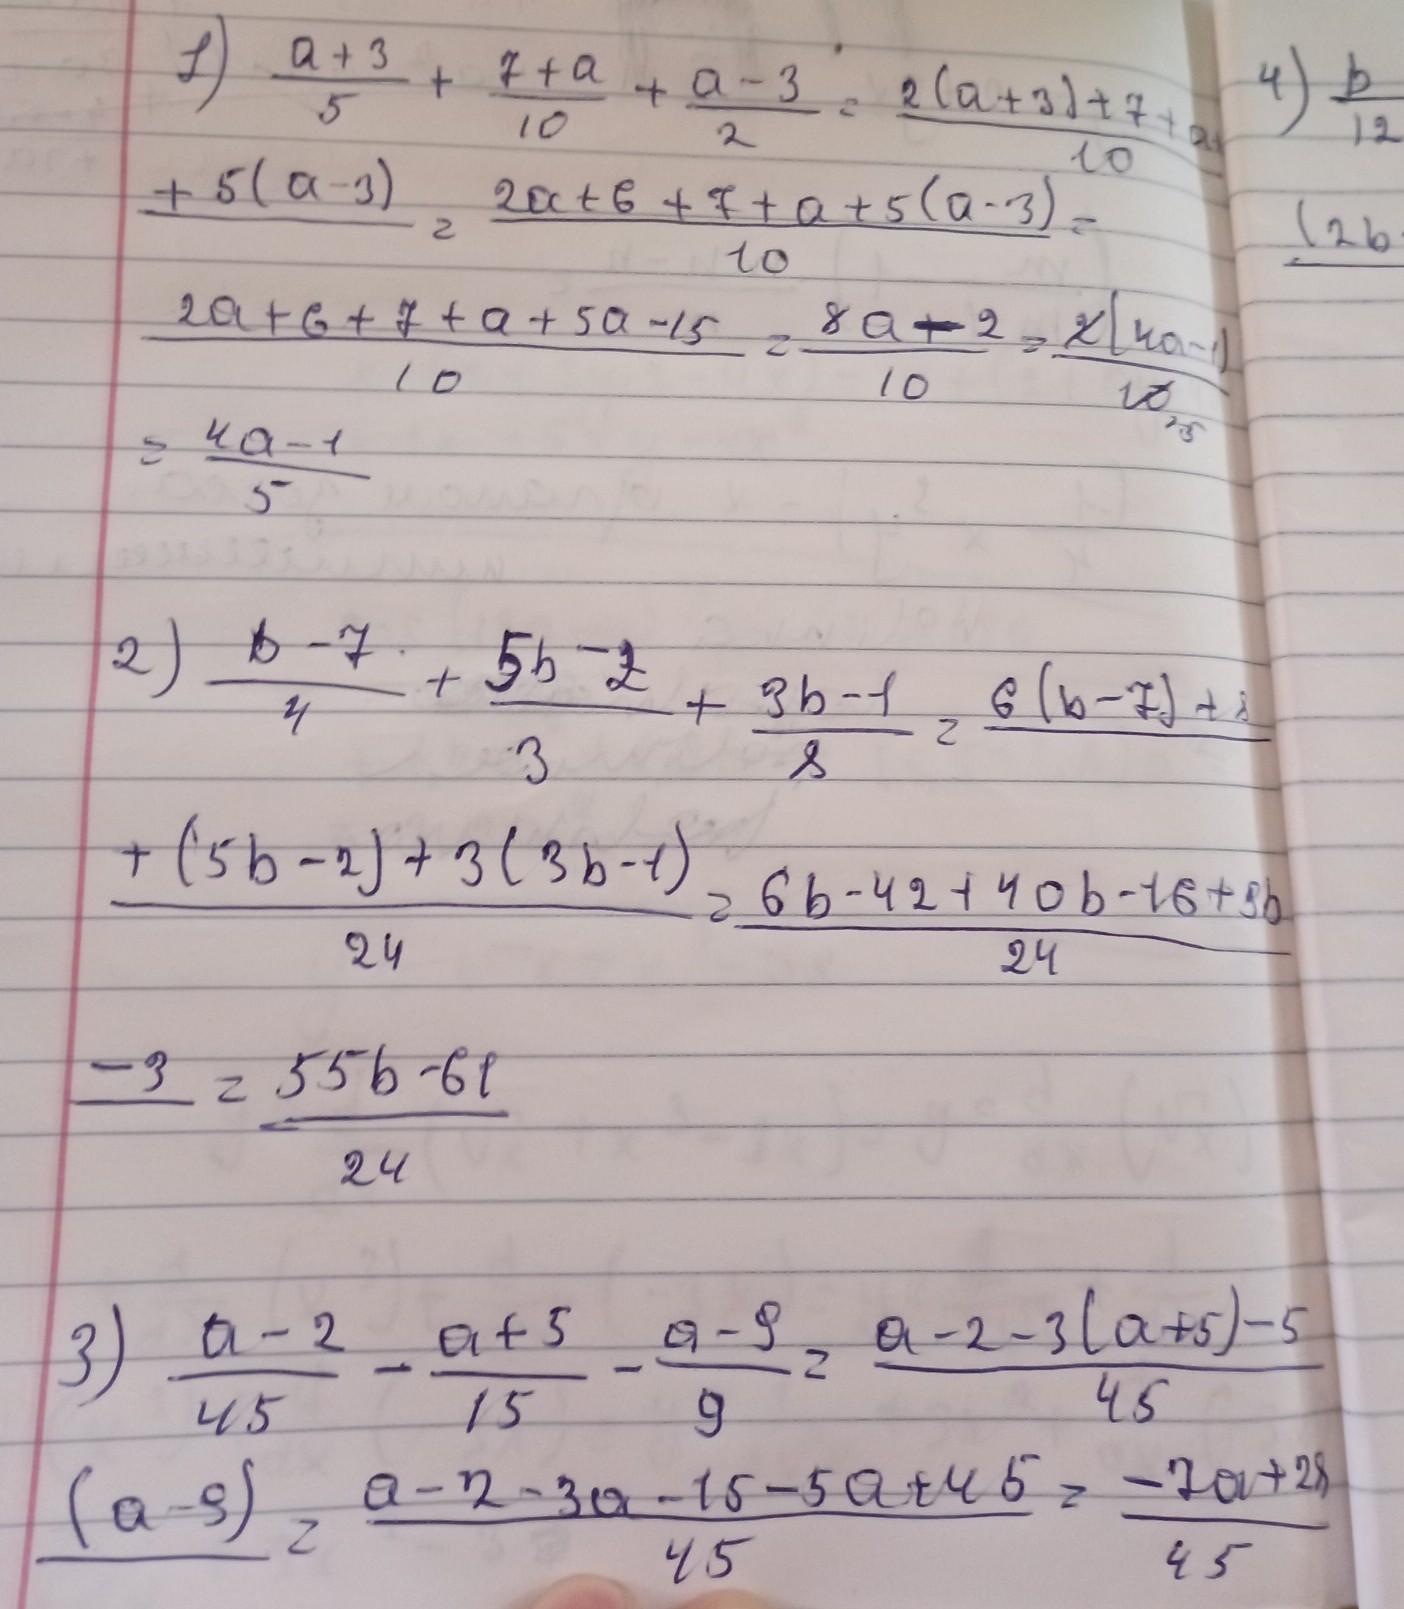 1) (a+3)/5 + (7+a)/10 + (a-3)/2 = (2(a+3)+7+a)/10
+5(a-3) = (2a+6+7+a+5(a-3))/10 =
(2a+6+7+a+5a-15)/10 = (8a-2)/10 = 2(4a-1)/10 5
= (4a-1)/5
2) (b-7)/4 + (5b-2)/3 + (3b-1)/8 = 6(b-7)+8
(+(5b-2)+3(3b-1))/24 = (6b-42+40b-16+9b)/24
-3 = (55b-61)/24
3) (a-2)/45 - (a+5)/15 - (a-9)/9 = (a-2-3(a+5)-5)/45
(a-9) = (a-2-3a-15-5a+45)/45 = (-7a+28)/45
4) b/12
(2b